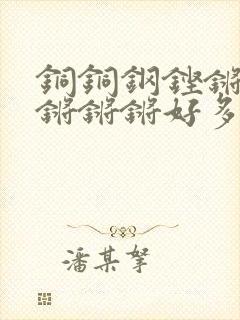 銅銅鋼鏗鏘
鏘鏘鏘好多
潘某拏